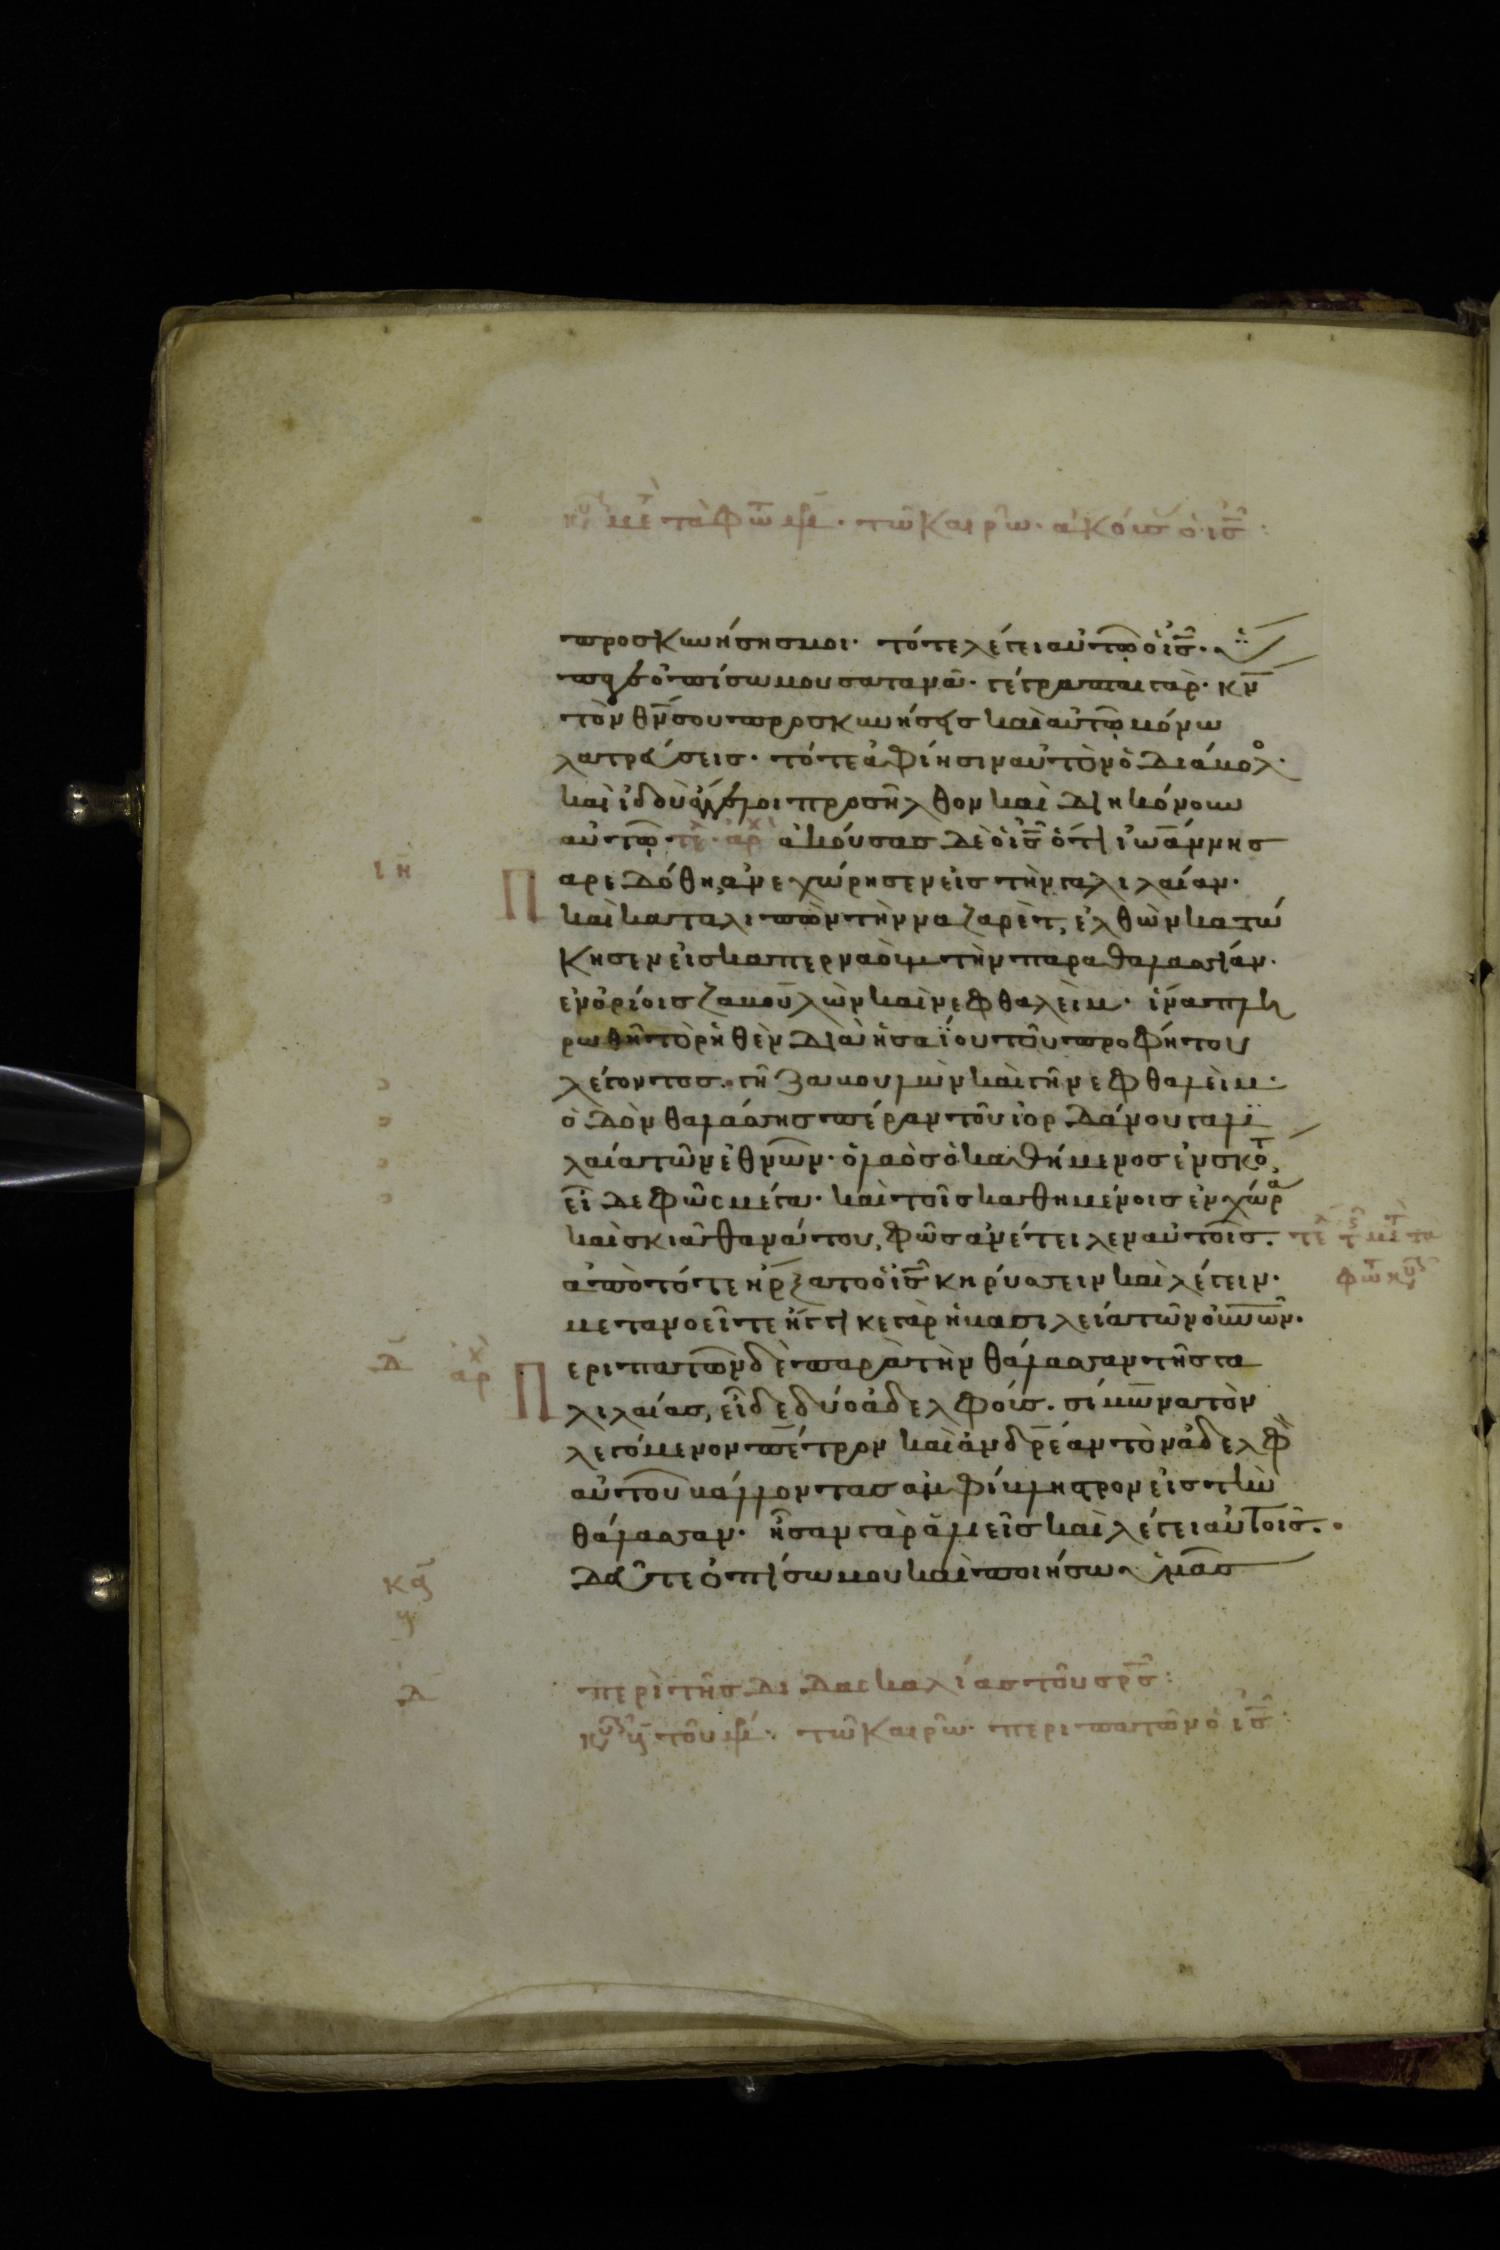 κυ μετὰ φῶτ τῶ καιρῶ ἀκούσ ὁ ις:
προσκυνήσης μοι. τότε λέγει αὐτῶ ὁ ις. ὕ
παγε ὀπίσω μου σατανᾶ. γέγραπται γὰρ. κν
τὸν θν σου προσκυνήσεις καὶ αὐτῶ μόνω
λατρεύσεις. τότε ἀφίησιν αὐτὸν ὁ διάβολ.
καὶ ἰδοὺ ἄγγελοι προσῆλθον καὶ διηκόνουν
αὐτῶ. τε. ἀρχ ἀκούσας δὲ ὁ ις ὅτι ἰωάννης
ιη
παρεδόθη, ἀνεχώρησεν εἰς τὴν γαλιλαίαν.
καὶ καταλιπὼν τὴν ναζαρὲτ, ἐλθὼν κατώ
κησεν εἰς καπερναοὺμ τὴν παραθαλασσίαν.
ἐν ὁρίοις ζαβουλὼν καὶ νεφθαλεὶμ. ἵνα πλη
ρωθῆ τὸ ρηθὲν διὰ ἠσαΐου τοῦ προφήτου
λέγοντος. γῆ ζαβουλὼν καὶ γῆ νεφθαλεὶμ.
ὁδὸν θαλάσσης πέραν τοῦ ἰορδάνου γαλι
λαία τῶν ἐθνῶν. ὁ λαὸς ὁ καθήμενος ἐν σκότ,
εἶδε φῶς μέγα. καὶ τοῖς καθημένοις ἐν χώρα
καὶ σκιᾶ θανάτου, φῶς ἀνέτειλεν αὐτοῖς. τε τ μετ τα
φῶτ κυ
ἀπὸ τότε ἤρξατο ὁ ις κηρύσσειν καὶ λέγειν.
μετανοεῖτε ἤγγικε γὰρ ἡ βασιλεία τῶν οὐνῶν.
δ ἀρχ
Περιπατῶν δὲ παρὰ τὴν θάλασσαν τῆς γα
λιλαίας, εἶδε δύο ἀδελφούς. σίμωνα τὸν
λεγόμενον πέτρον καὶ ἀνδρέαν τὸν ἀδελφ
αὐτοῦ βάλλοντας ἀμφίβληστρον εἰς τὴν
θάλασσαν. ἦσαν γὰρ ἁλιεῖς καὶ λέγει αὐτοῖς.
δεῦτε ὀπίσω μου καὶ ποιήσω ὑμᾶς
δ περὶ τῆς διδασκαλίας τοῦ σρς:
κυ τοῦ τῶ καιρῶ περιπατῶν ὁ ις: